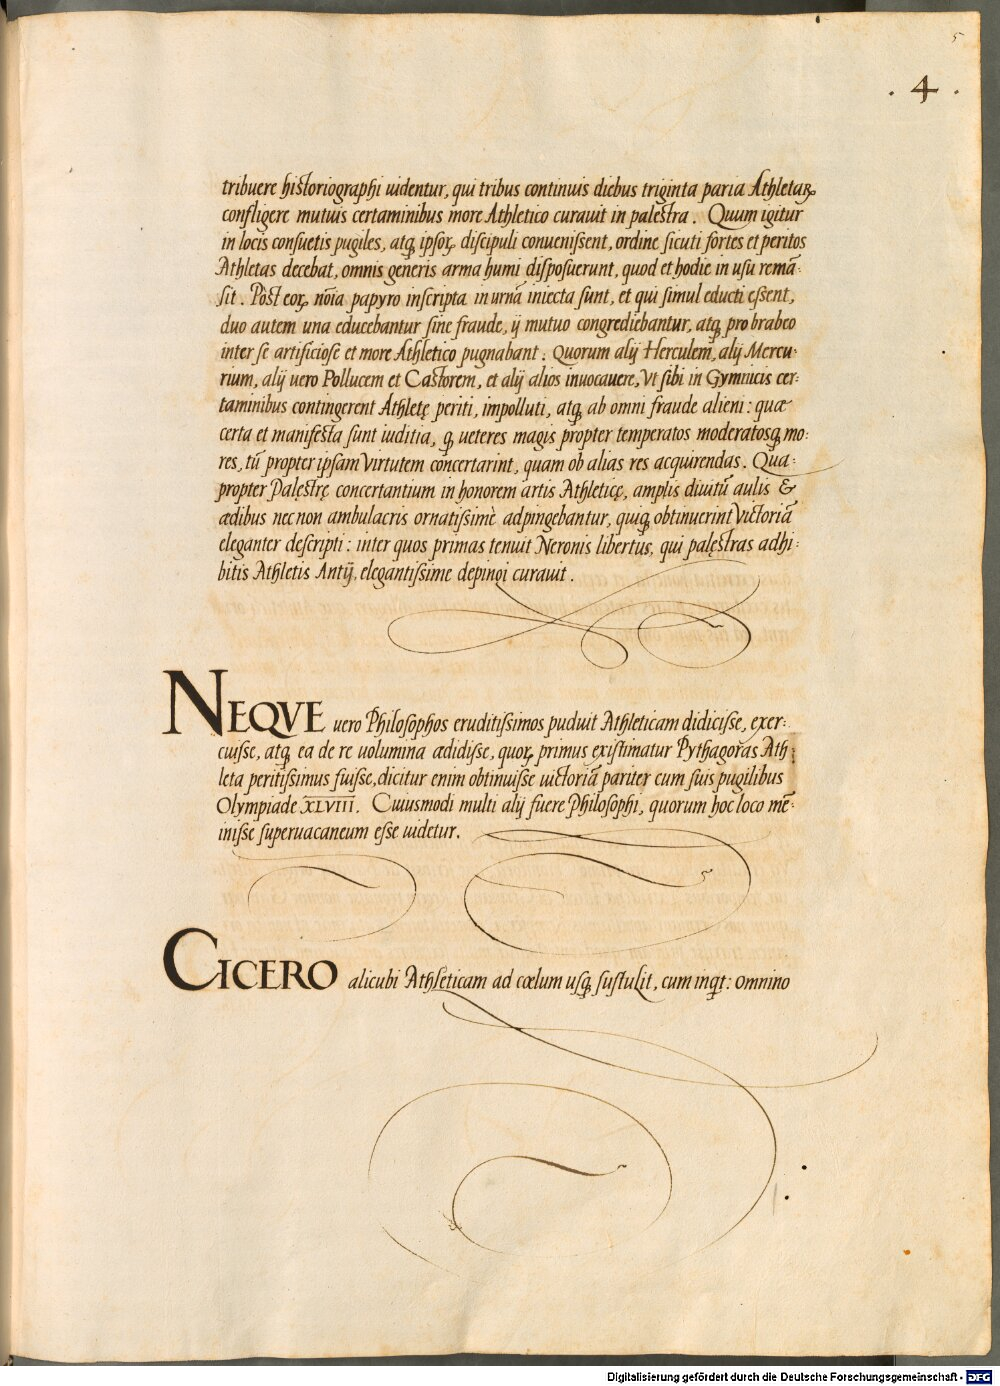 5
. 4 .
tribuere historiographi uidentur, qui tribus continuis diebus triginta paria Athletaꝝ
confligere mutuis certaminibus more Athletico curauit in palestra. Quum igitur
in locis consuetis pugiles, atqꝫ ipsoꝝ discipuli conuenissent, ordine sicuti fortes et peritos
Athletas decebat, omnis generis arma humi disposuerunt, quod et hodie in usu remã:
sit. Post eoꝝ nõia papyro inscripta in urnã iniecta sunt, et qui simul educti essent,
duo autem una educebantur sine fraude, ij mutuo congrediebantur, atqꝫ pro brabeo
inter se artificiose et more Athletico pugnabant. Quorum alij Herculem, alij Mercu:
rium, alij uero Pollucem et Castorem, et alij alios inuocauere, Vt sibi in Gymnicis cer:
taminibus contingerent Athletę periti, impolluti, atqꝫ ab omni fraude alieni: quæ
certa et manifesta sunt iuditia, qꝫ ueteres magis propter temperatos moderatosqꝫ mo:
res, tũ propter ipsam Virtutem concertarint, quam ob alias res acquirendas. Qua:
propter Palęstrę concertantium in honorem artis Athleticę, amplis diuitũ aulis &
ædibus nec non ambulacris ornatissimè adpingebantur, quiqꝫ obtinuerint Victoriã
eleganter descripti: inter quos primas tenuit Neronis libertus, qui palęstras adhi:
bitis Athletis Antij, elegantissime depingi curauit.
NEQVE uero Philosophos eruditissimos puduit Athleticam didicisse, exer:
cuisse, atqꝫ ea de re uolumina ædidisse, quoꝝ primus existimatur Pythagoras Ath:
leta peritissimus fuisse, dicitur enim obtinuisse uictoriã pariter cum suis pugilibus
Olympiade XLVIII. Cuiusmodi multi alij fuere Philosophi, quorum hoc loco mẽ:
inisse superuacaneum esse uidetur.
CICERO alicubi Athleticam ad cœlum usqꝫ sustulit, cum inqt: omnino
Digitalisierung gefördert durch die Deutsche Forschungsgemeinschaft - DFG